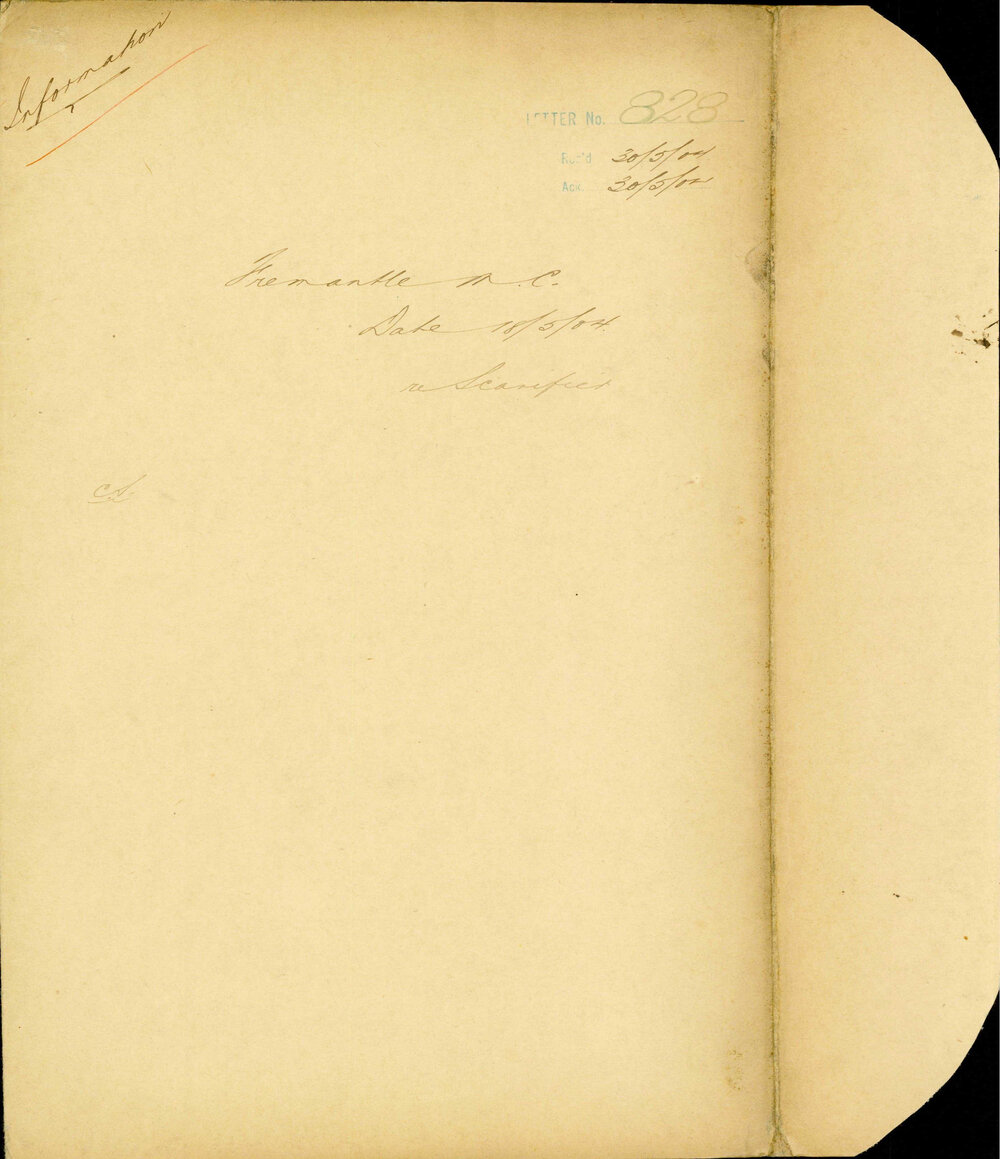 Information
LETTER No. 828
Rec'd 30/5/04
Ack. 30/5/04
Fremantle M.C.
Date 18/5/04.
re Scarifier